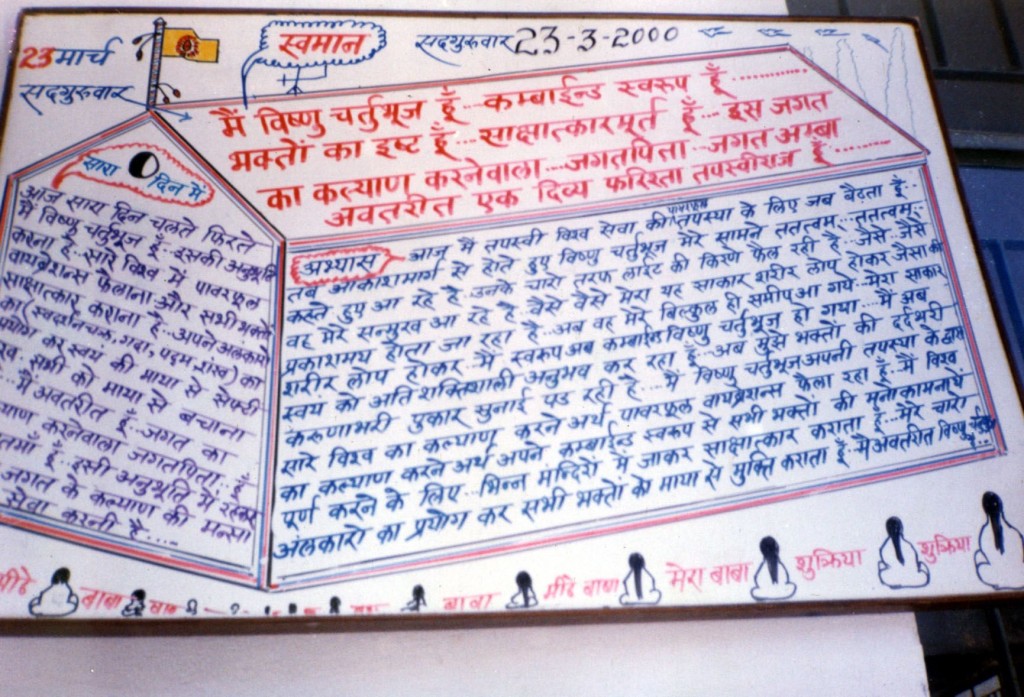 23 मार्च
सदगुरुवार
स्वमान
सदगुरुवार 23-3-2000
मैं विष्णु चर्तुभूज हूँ... कम्बाईन्ड स्वरुप हूँ............
भक्तों का इष्ट हूँ... साक्षात्कारमूर्त हूँ... इस जगत
का कल्याण करनेवाला... जगतपिता... जगत अम्बा
अवतरीत एक दिव्य फरिश्ता तपस्वीराज हूँ............
सारा दिन में
आज सारा दिन चलते फिरते
मैं विष्णु चर्तुभूज हूँ.. इसकी अनुभूति
करना है.. सारे विश्व में पावरफूल
वायब्रेशन्स फैलाना और सभी भक्तों
साक्षात्कार कराना है.. अपने अलंकारो
का (स्वदर्शनचक्र, गदा, पदम, शंख) का
प्रयोग कर स्वयं की माया से सेफ्टी
सभी को माया से बचाना
...मैं अवतरीत हूँ.. जगत का
करनेवाला जगतपिता हूँ
हूँ.. इसी अनुभूति में रहकर
जगत के कल्याण की मन्सा
सेवा करनी है....
अभ्यास ... आज मैं तपस्वी विश्व सेवा की तपस्या के लिए जब बैठता हूँ..
तब आकाशमार्ग से होते हुए विष्णु चर्तुभूज मेरे सामने ततत्वम.. ततत्वम..
करते हुए आ रहे है.. उनके चारो तरफ लाईट की किरणे फैल रही है.. जैसे जैसे
वह मेरे सन्मुख आ रहे है.. वैसे वैसे मेरा यह साकार शरीर लोप होकर जैसा की
प्रकाशमय होता जा रहा है.. अब वह मेरे बिल्कुल ही समीप आ गये.. मेरा साकार
शरीर लोप होकर.. मैं स्वरुप अब कम्बाईन्ड विष्णु चर्तुभूज हो गया... मैं अब
स्वयं को अति शक्तिशाली अनुभव कर रहा हूँ.. अब मुझे भक्तों की दर्दभरी
करुणाभरी पुकार सुनाई पड रही है... मैं विष्णु चर्तुभूज अपनी तपस्या के द्वारा
सारे विश्व का कल्याण करने अर्थ पावरफूल वायब्रेशन्स फैला रहा हूँ.. मैं विश्व
का कल्याण करने अर्थ अपने कम्बाईन्ड स्वरुप से सभी भक्तों की मनोकामनायें
पूर्ण करने के लिए.. भिन्न मंदिरों में जाकर साक्षात्कार कराता हूँ.. मेरे चारो
अलंकारो का प्रयोग कर सभी भक्तों को माया से मुक्ति कराता हूँ.. मैं अवतरीत विष्णु चर्तुभूज हूँ..
मीठे बाबा बाबा मीठे बाबा मेरा बाबा शुक्रिया शुक्रिया